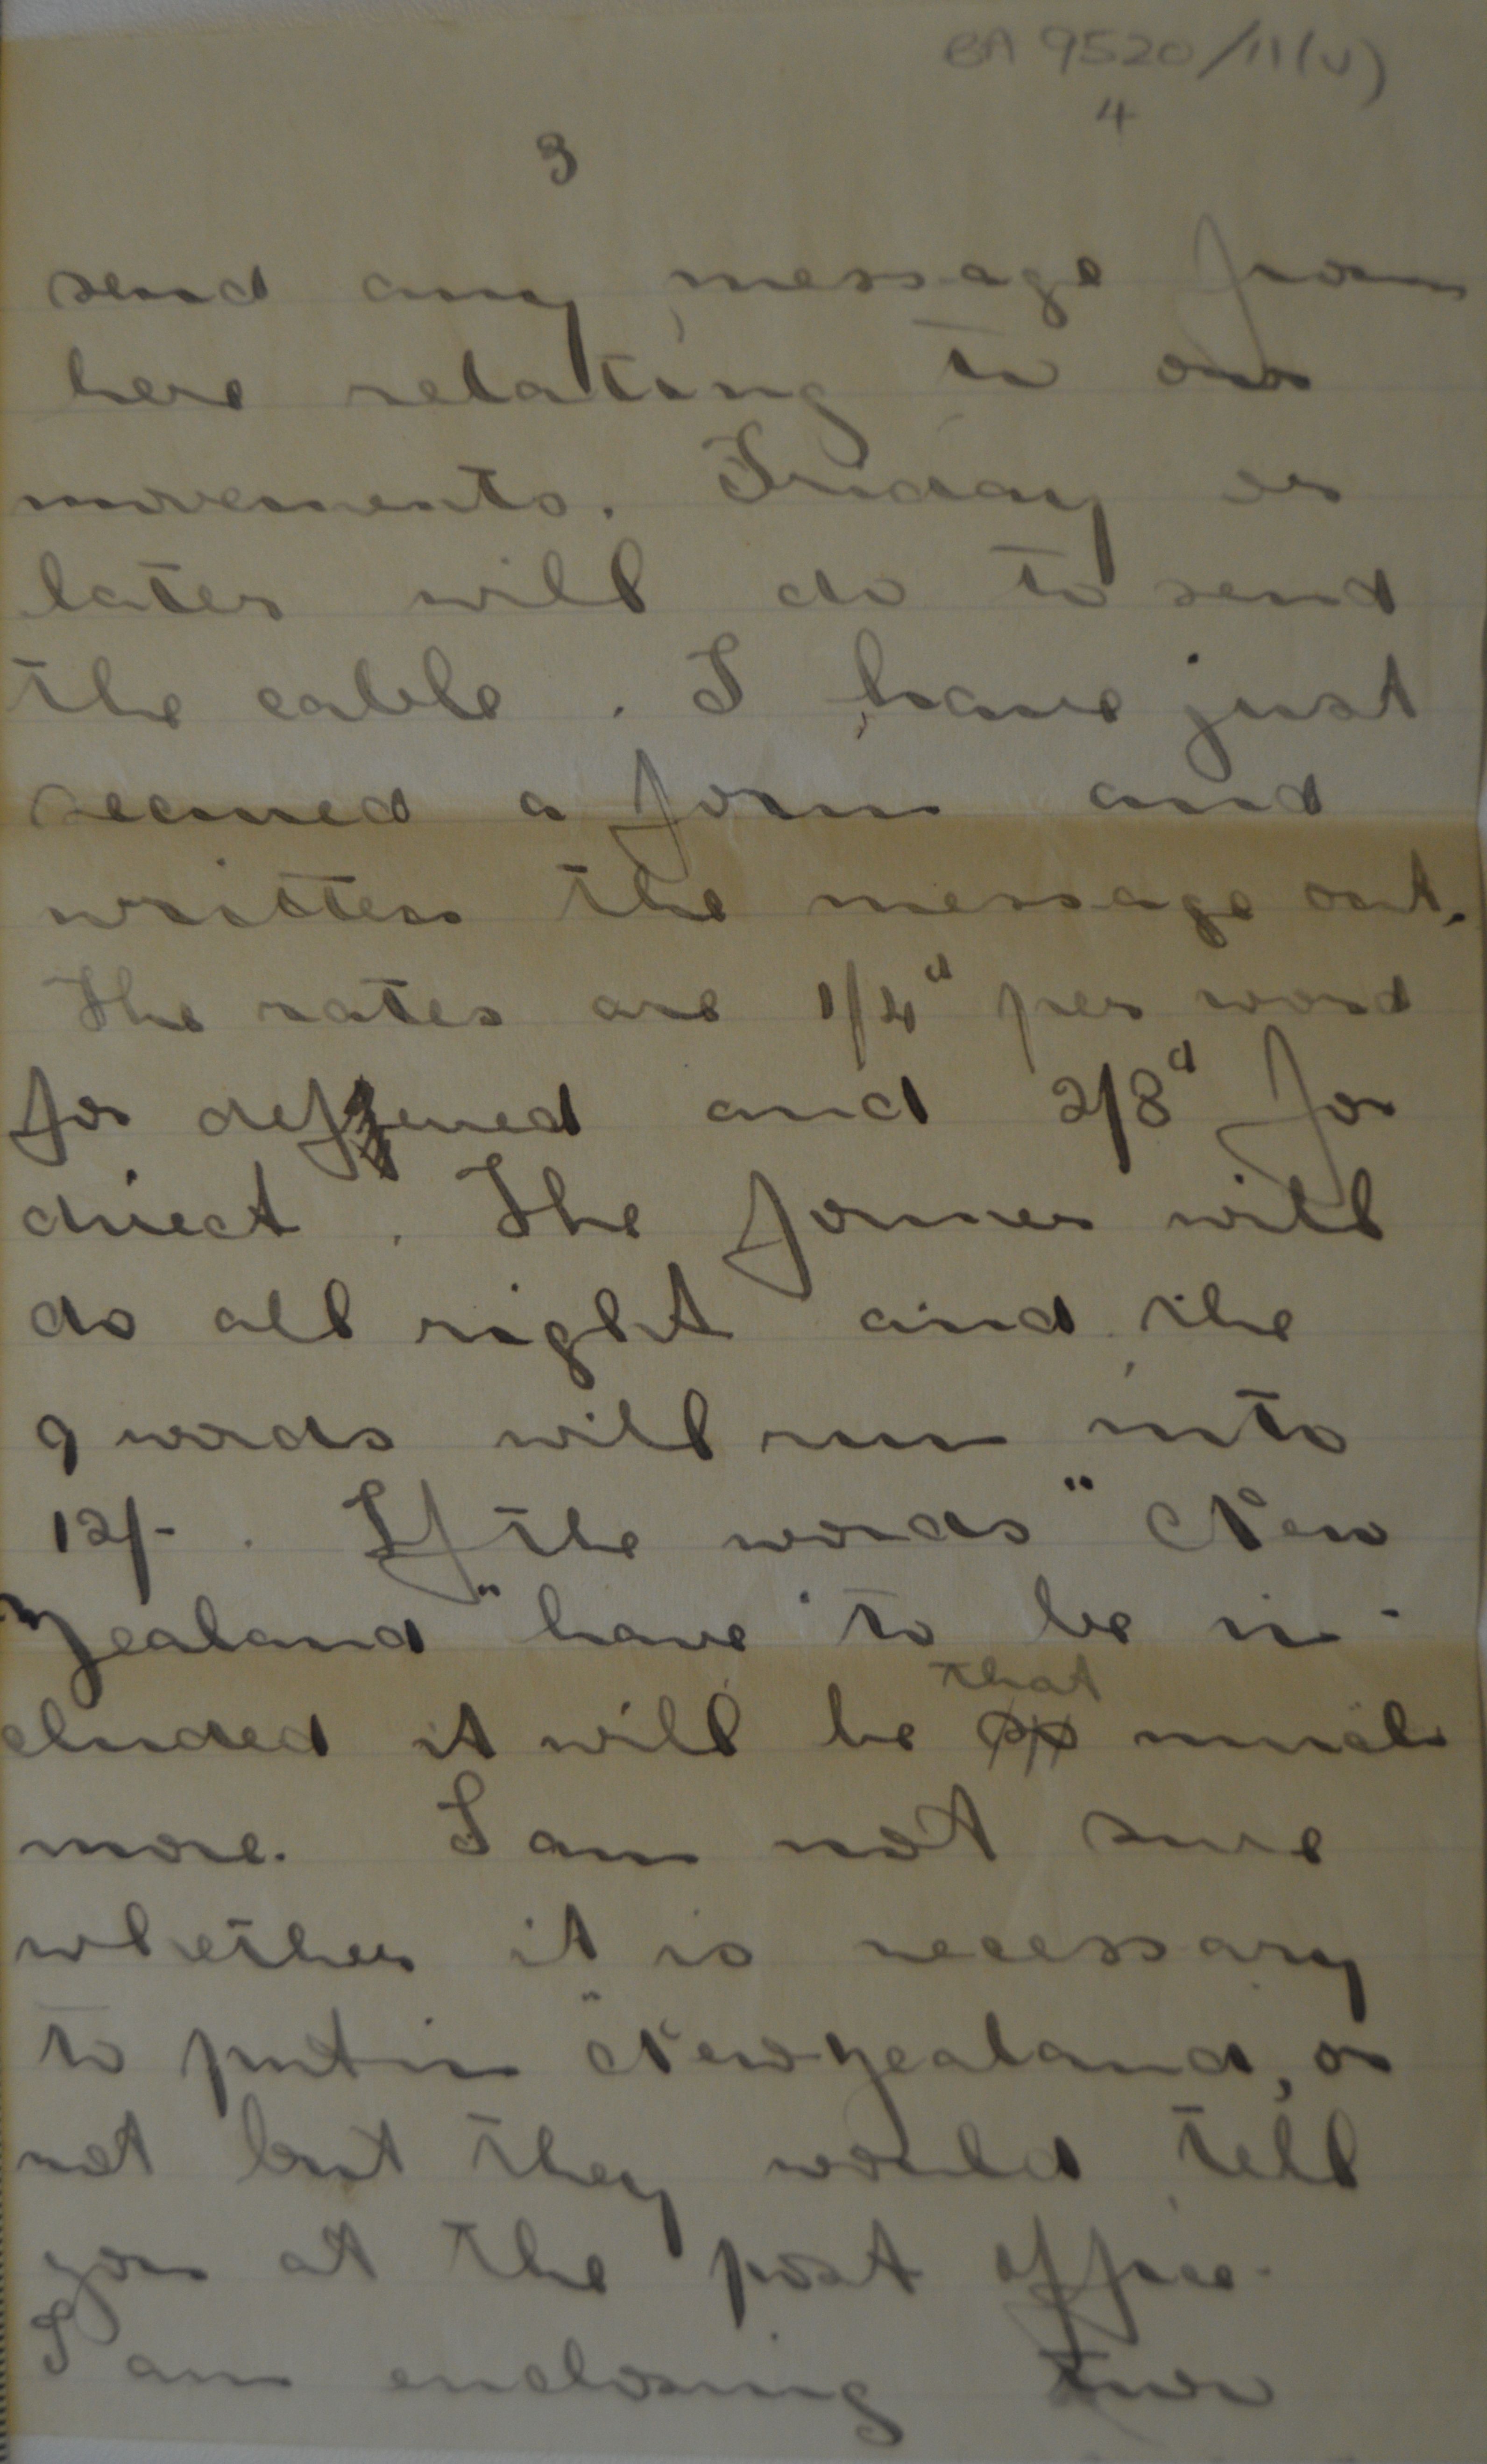 BA 9520/11(v)
4
3
send any message from
here relating to our
movements. Friday or
later will do to send
the cable. I have just
secured a form and
written the message out.
The rates are 1/4d per word
for deferred and 2/8d for
direct. The former will
do all right and the
9 words will run into
12/-. If the words "New
Zealand" have to be in-
cluded it will be that much
more. I am not sure
whether it is necessary
to put in "New Zealand, or
not but they would tell
you at the post office.
I am enclosing two